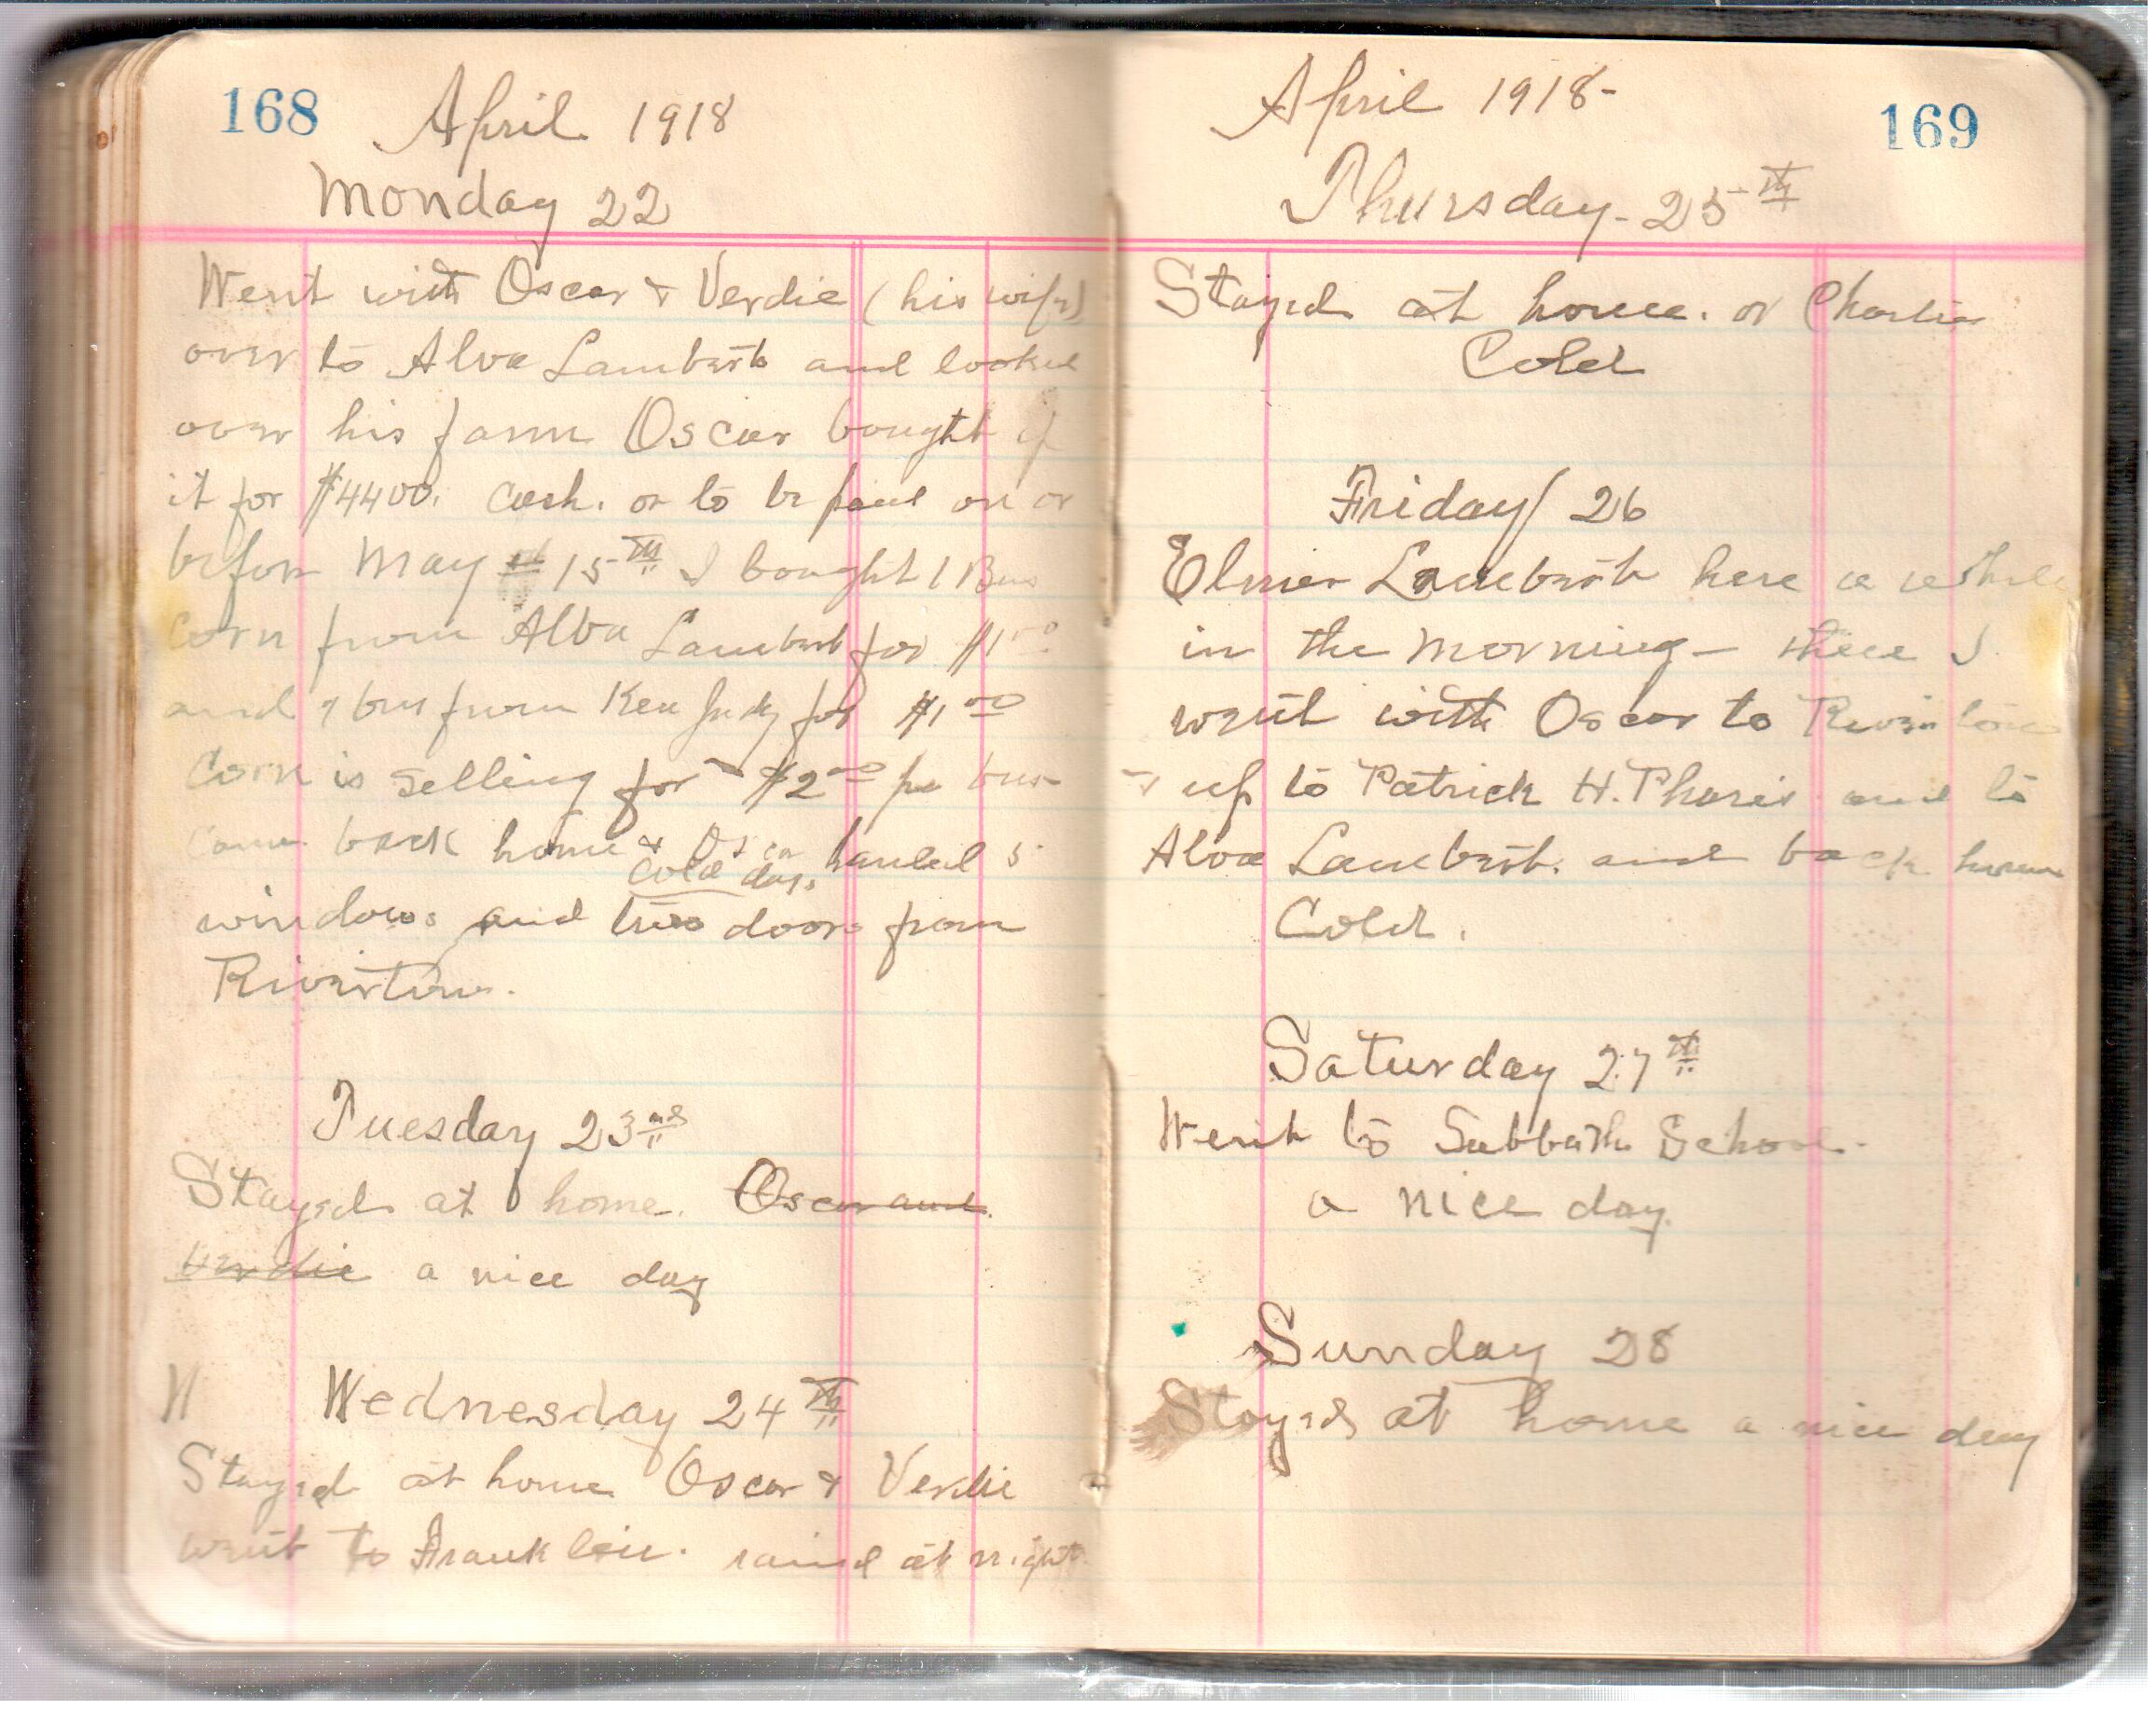 168
April 1918
Monday 22
Went with Oscar & Verdie (his wife)
over to Alva Lambert and looked
over his farm Oscar bought
it for $4400. cash. or to be paid on or
befor May 15th I bought 1 Bus
corn from Alva Lambert for $1.00
and 1 bus from Ken Judy for $1.00
Corn is selling for $2.00 per bus
Came back home & Oscar hauled 5
cold day.
windows and two doors from
Riverton.
Tuesday 23rd
Stayed at home. Oscar and
Verdie a nice day
W Wednesday 24th
Stayed at home Oscar & Verdie
went to Franklin. rained at night
169
April 1918-
Thursday- 25th
Stayed at home. or Charlies
Cold
Friday 26
Elmer Lambert here a while
in the morning- then I
went with Oscar to Riverton
& up to Patrick H. Phares and to
Alva Lambert. and back home
Cold.
Saturday 27th
Went to Sabbath School-
a nice day.
Sunday 28
Stayed at home a nice day